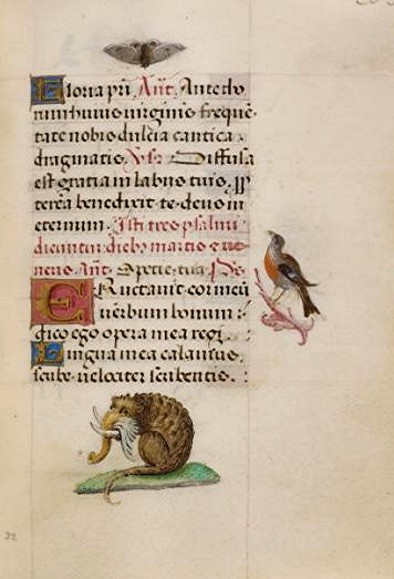 Gloria pri. Añt. Ante tho
rum huius virginis freque͂
tate nobis dulcia cantica
dragmatis. Vsz. Diffusa
est gratia in labiis tuis. Pp
terea benedixit te deus in
eternum. Isti tres psalmi
dicuntur diebꝫ martis et ve
neris. Añt. Specie tua. Ps.
Eructauit cor meu͂
verbum bonum:
dico ego opera mea regi.
Lingua mea calamus
scribe: velociter scribentis.: